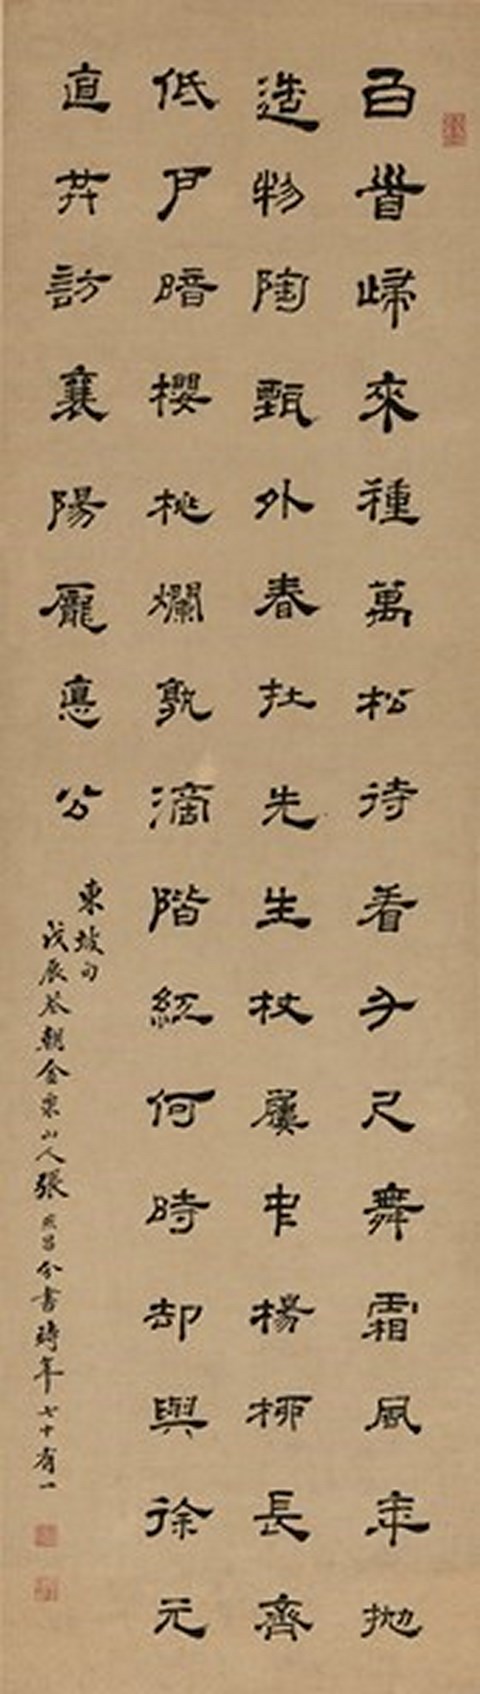 白首歸來種萬松待看千尺舞霜風年拋
造物陶甄外春在先生杖屨中楊柳長齊
低戶暗櫻桃爛熟滴階紅何時却與徐元
直共訪襄陽龐悳公
東坡句
戊辰朝金粟山人張燕昌分書時年七十有一